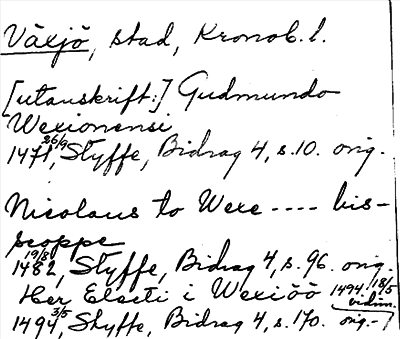 Växjö, stad, Kronob. l.
[utanskrift:] Gudmundo
Wexionensi
1471 26/9, Styffe, Bidrag 4, s. 10. orig.
Nicolaus to Wexe ---- bis-
scoppe
1482 19/8, Styffe, Bidrag 4, s. 96. orig.
Her Elaeti i Wexiöö 1494 18/5 vidim.
1494 3/5, Styffe, Bidrag 4, s. 170. orig.-